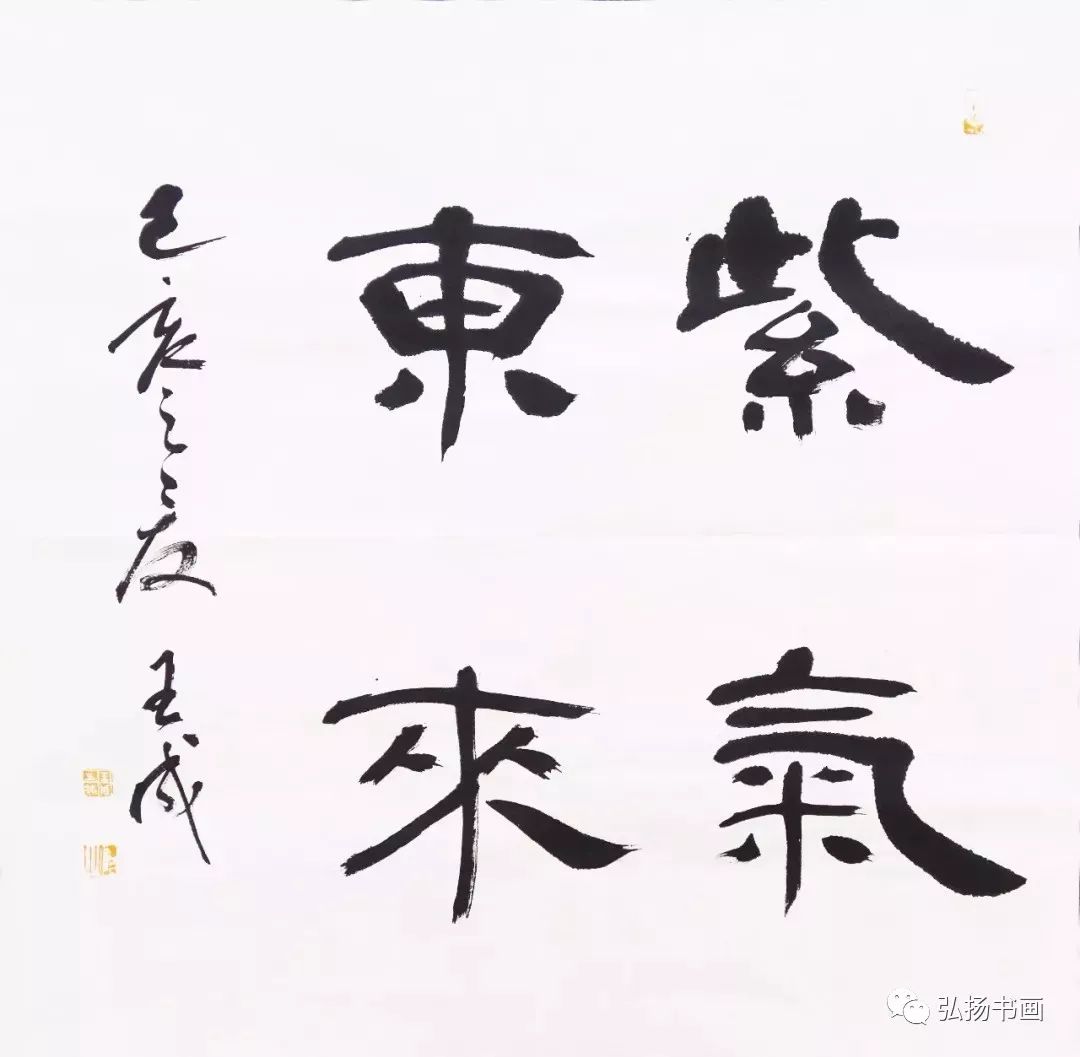 紫氣
東來
己亥之夏 王成
弘扬书画